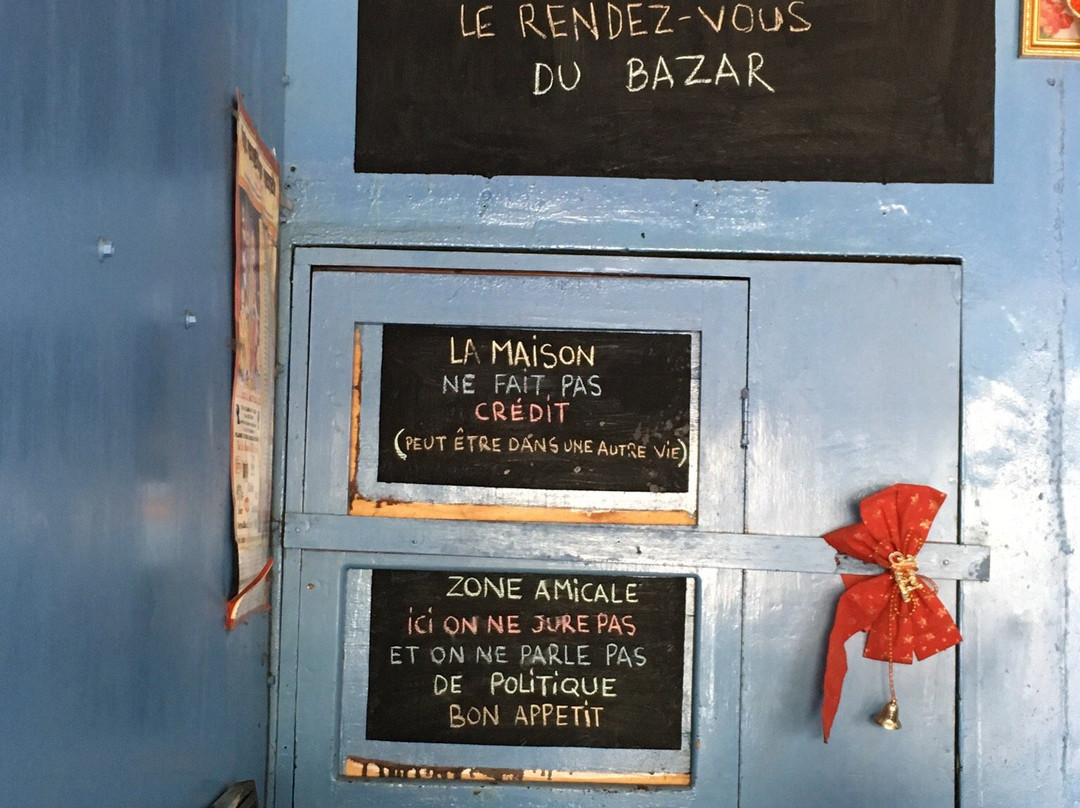 LE RENDEZ-VOUS
DU BAZAR
LA MAISON
NE FAIT PAS
CRÉDIT
(PEUT ÊTRE DANS UNE AUTRE VIE)
ZONE AMICALE
ICI ON NE JURE PAS
ET ON NE PARLE PAS
DE POLITIQUE
BON APPETIT